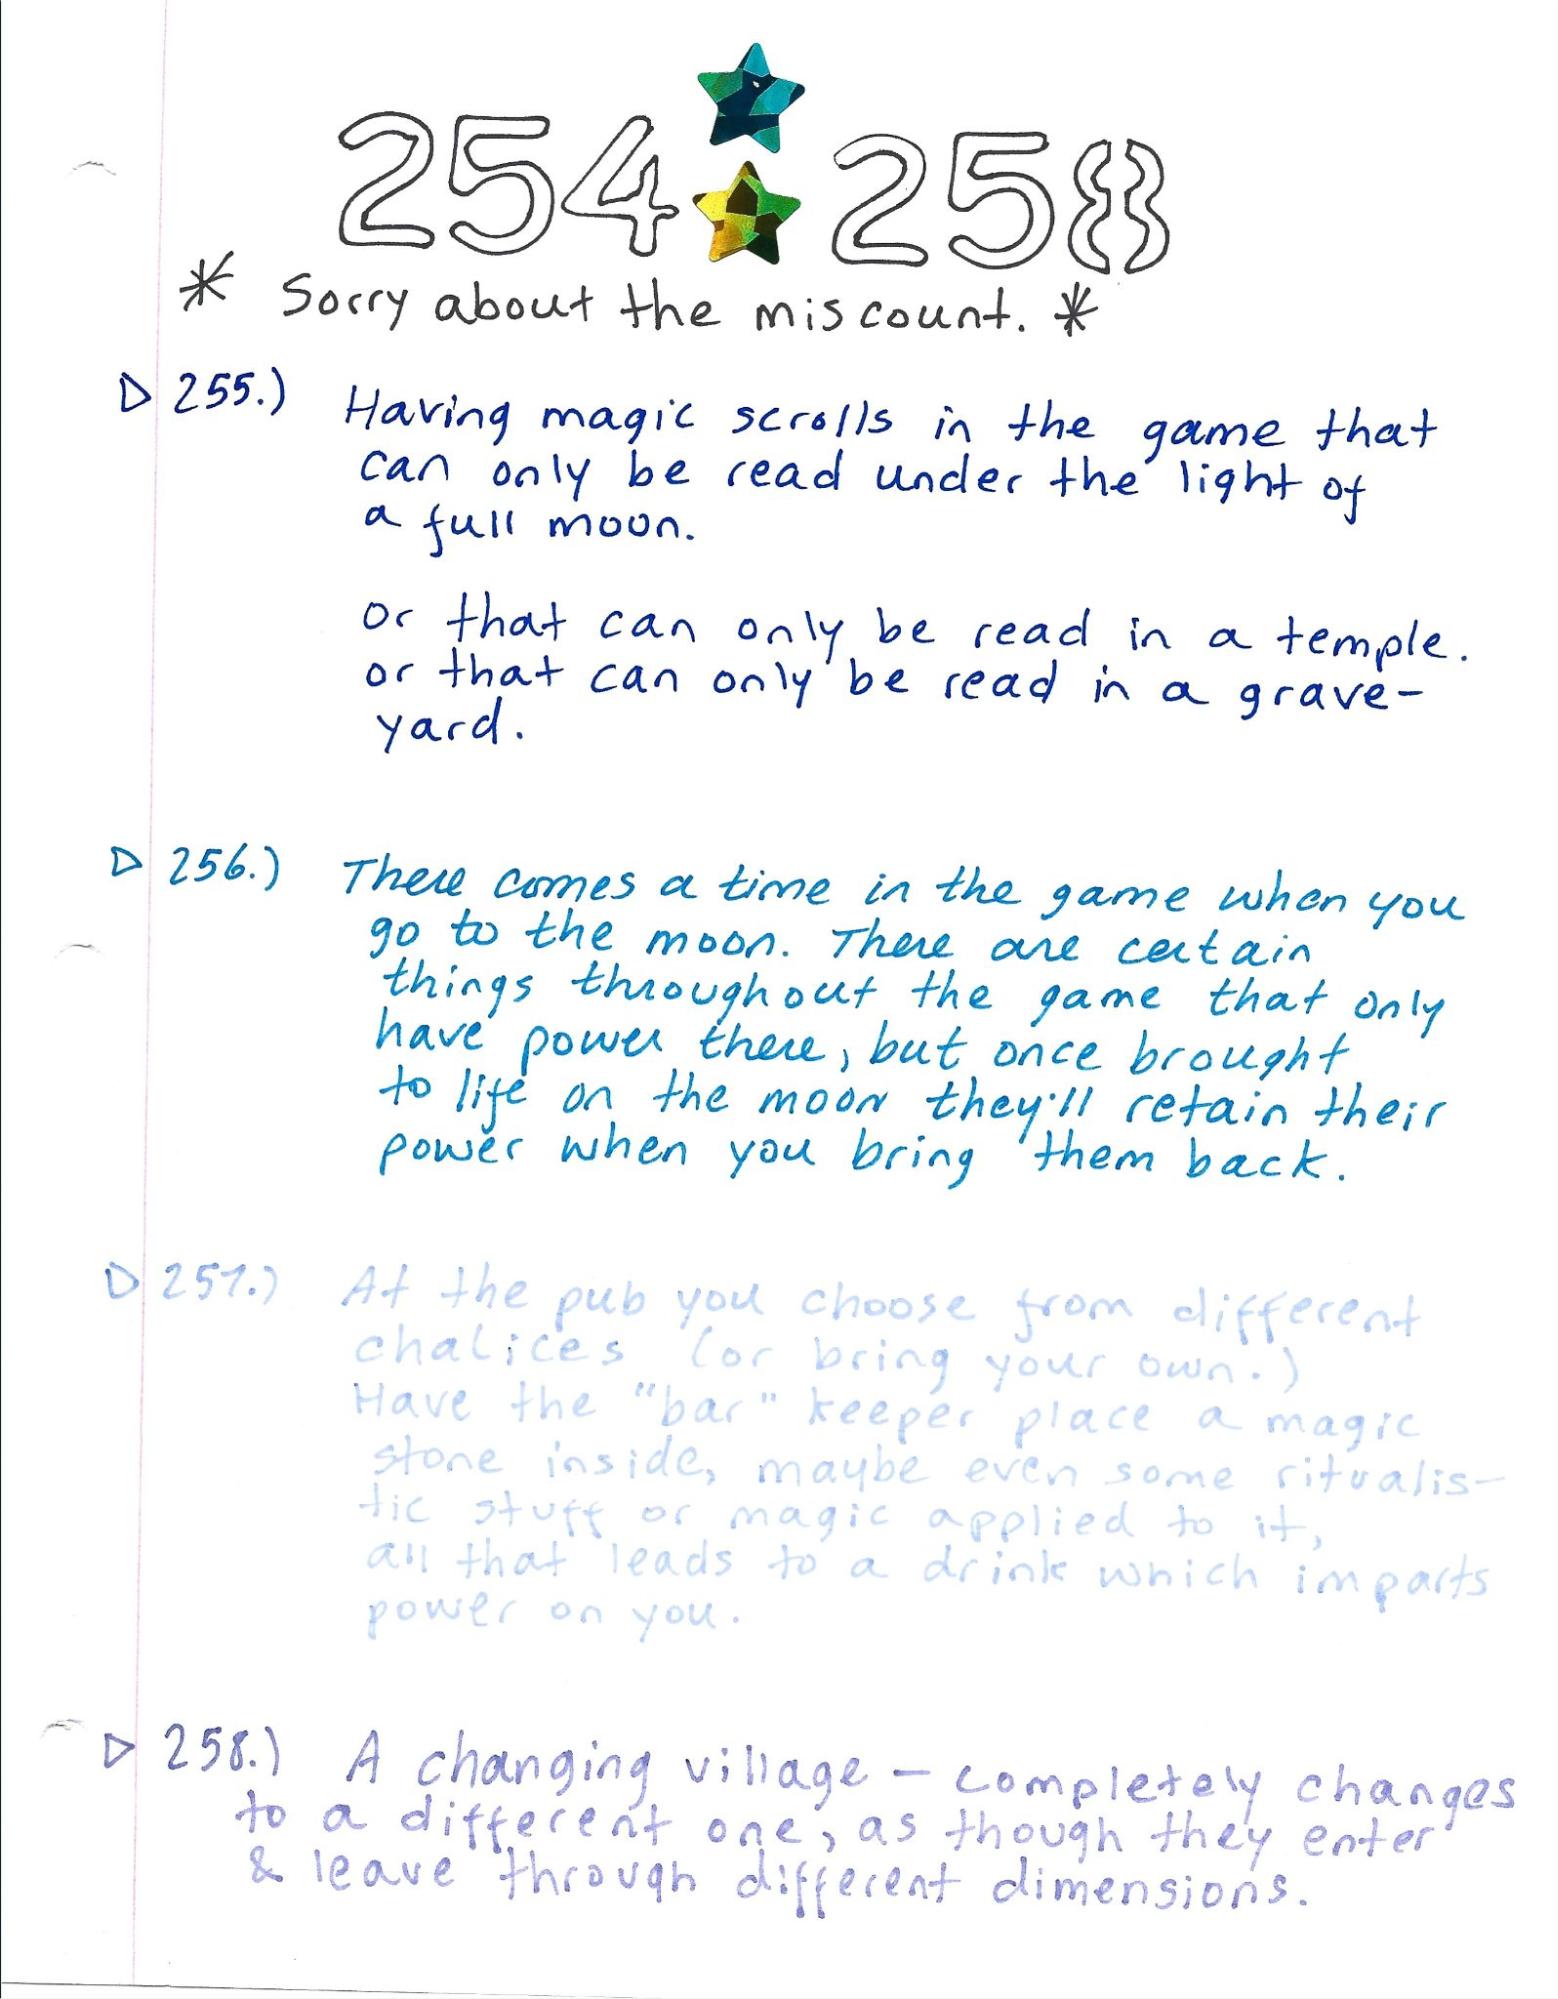 254 258
* Sorry about the miscount. *
255.) Having magic scrolls in the game that
can only be read under the light of
a full moon.
or that can only be read in a temple.
or that can only be read in a grave-
yard.
256.) There comes a time in the game when you
go to the moon. There are certain
things throughout the game that only
have power there, but once brought
to life on the moon they'll retain their
power when you bring them back.
257.) At the pub you choose from different
chalices (or bring your own.)
Have the "bar" keeper place a magic
stone inside, maybe even some ritualis-
tic stuff or magic applied to it,
all that leads to a drink which imparts
power on you.
258.) A changing village – completely changes
to a different one, as though they enter
& leave through different dimensions.